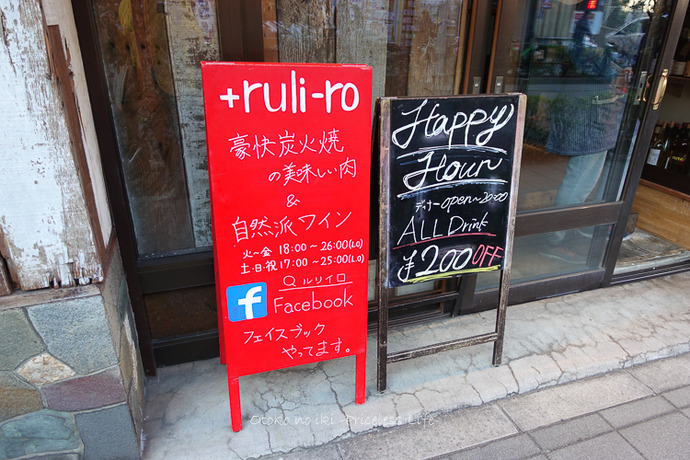 +ruli-ro
豪快炭火焼
の美味しい肉
&
自然派ワイン
火〜金 18:00〜26:00(LO)
土・日・祝 17:00〜25:00(LO)
ルリイロ
f Facebook
フェイスブック
やってます。
Happy
Hour
ディナーopen〜20:00
ALL Drink
¥200 OFF
Otoko no iki -Priceless Life